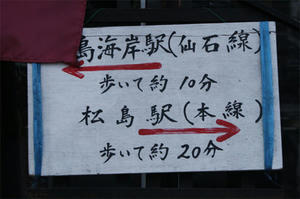 島海岸駅(仙石線)
歩いて約10分
松島駅(本線)
歩いて約20分